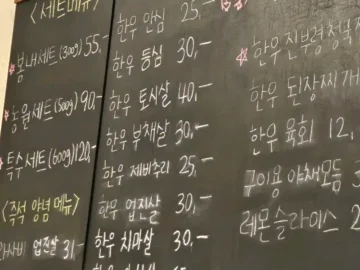 <세트메뉴>
봄내세트(300g) 55,-
세트(500g) 90,-
특수세트(600g) 120,-
<즉석 양념 메뉴>
업진살 31,-
한우 안심 25,-
한우 등심 30,-
한우 토시살 40,-
한우 부채살 30,-
한우 제비추리 25,-
한우 업진살 30,-
한우 치마살 30,-
한우
한우 된장찌개
한우 육회 12,
구이용 야채모듬 3
레몬슬라이스 2